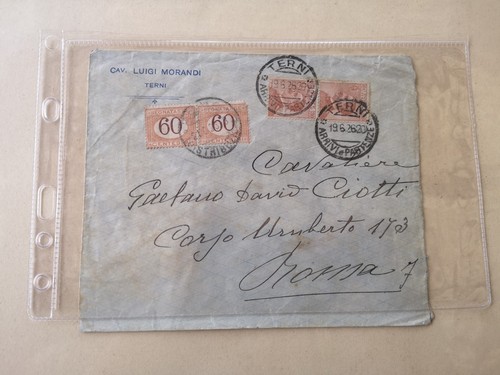 CAV. LUIGI MORANDI
TERNI
60
60
TERNI
19.6.26.20
TERNI
19.6.26.20
ARRIVI E PARTENZE
Cavaliere
Gaetano David Ciotti
Corso Umberto 173
Roma 7